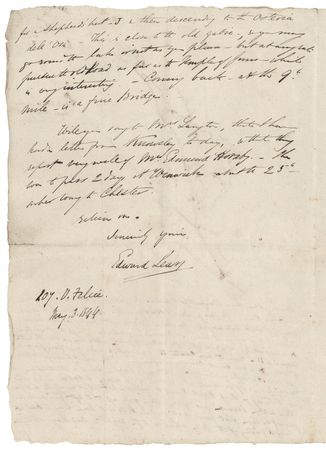 for a Shepherd's hut - & then descend to the Osteria
dell' Osa - This is close to the old gates, & you may
go round the lake or not as you please - but at any rate
pursue the old road as far as the temple of Juno - which
is very interesting - Coming back - at the 9th
mile - is a fine Bridge.
Will you say to Mrs Langton, that I have
had a letter from Knowsley to day, & that they
report very ill of Mrs Edmund Hornby. - 
to pass 2 days at about the 25th
to Chester.
Believe me,
Sincerely yours,
Edward Lear
107. V. Felice.
May. 3. 1844